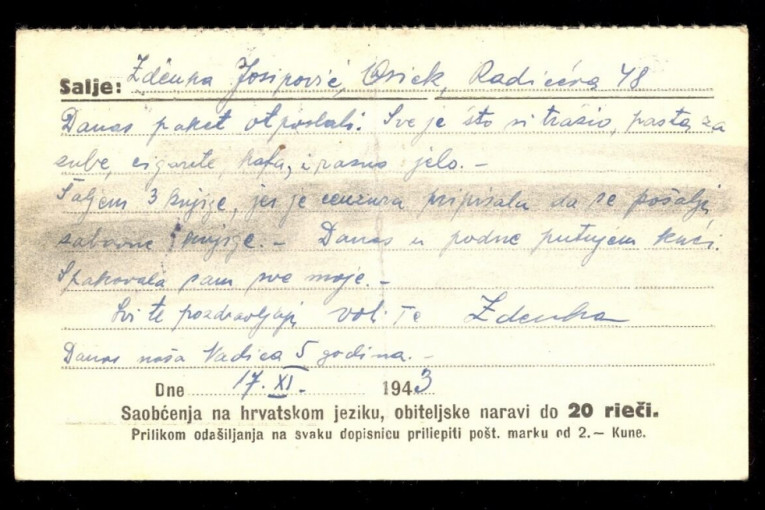 Šalje: Zdenka Josipović, Osiek, Radićeva 48
Danas paket otposlali. Sve je što si tražio, pasta za
zube, cigarete, kafa, i razno jelo. -
Šaljem 3 knjige, jer je cenzura pripisala da se pošalji
zabavne knjige. - Danas u podne putujem kući.
Spakovala sam sve moje. -
Svi te pozdravljaju voli Te Zdenka
Danas naša Nadica 5 godina. -
Dne 17. XI. - 1943
Saobćenja na hrvatskom jeziku, obiteljske naravi do 20 rieči.
Prilikom odašiljanja na svaku dopisnicu priliepiti pošt. marku od 2.— Kune.